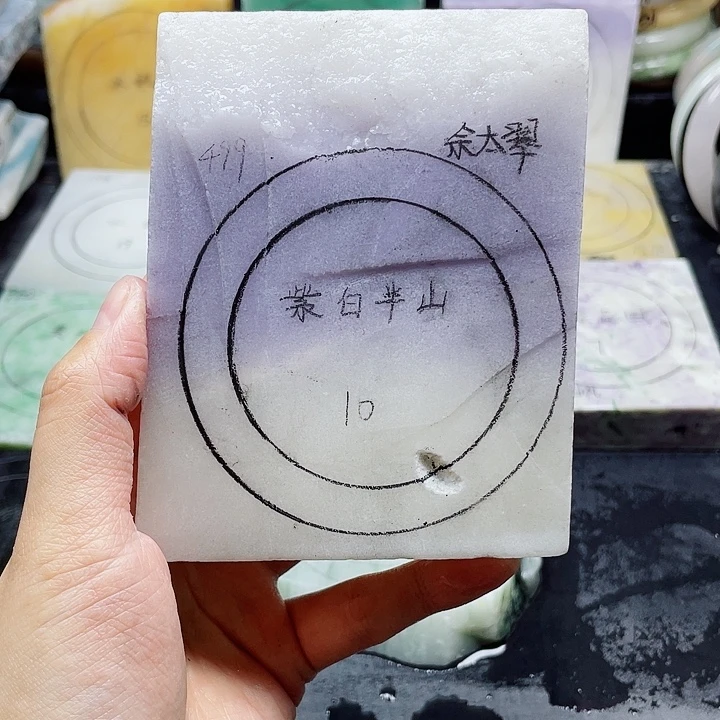 499
佘太翠
紫白半山
10